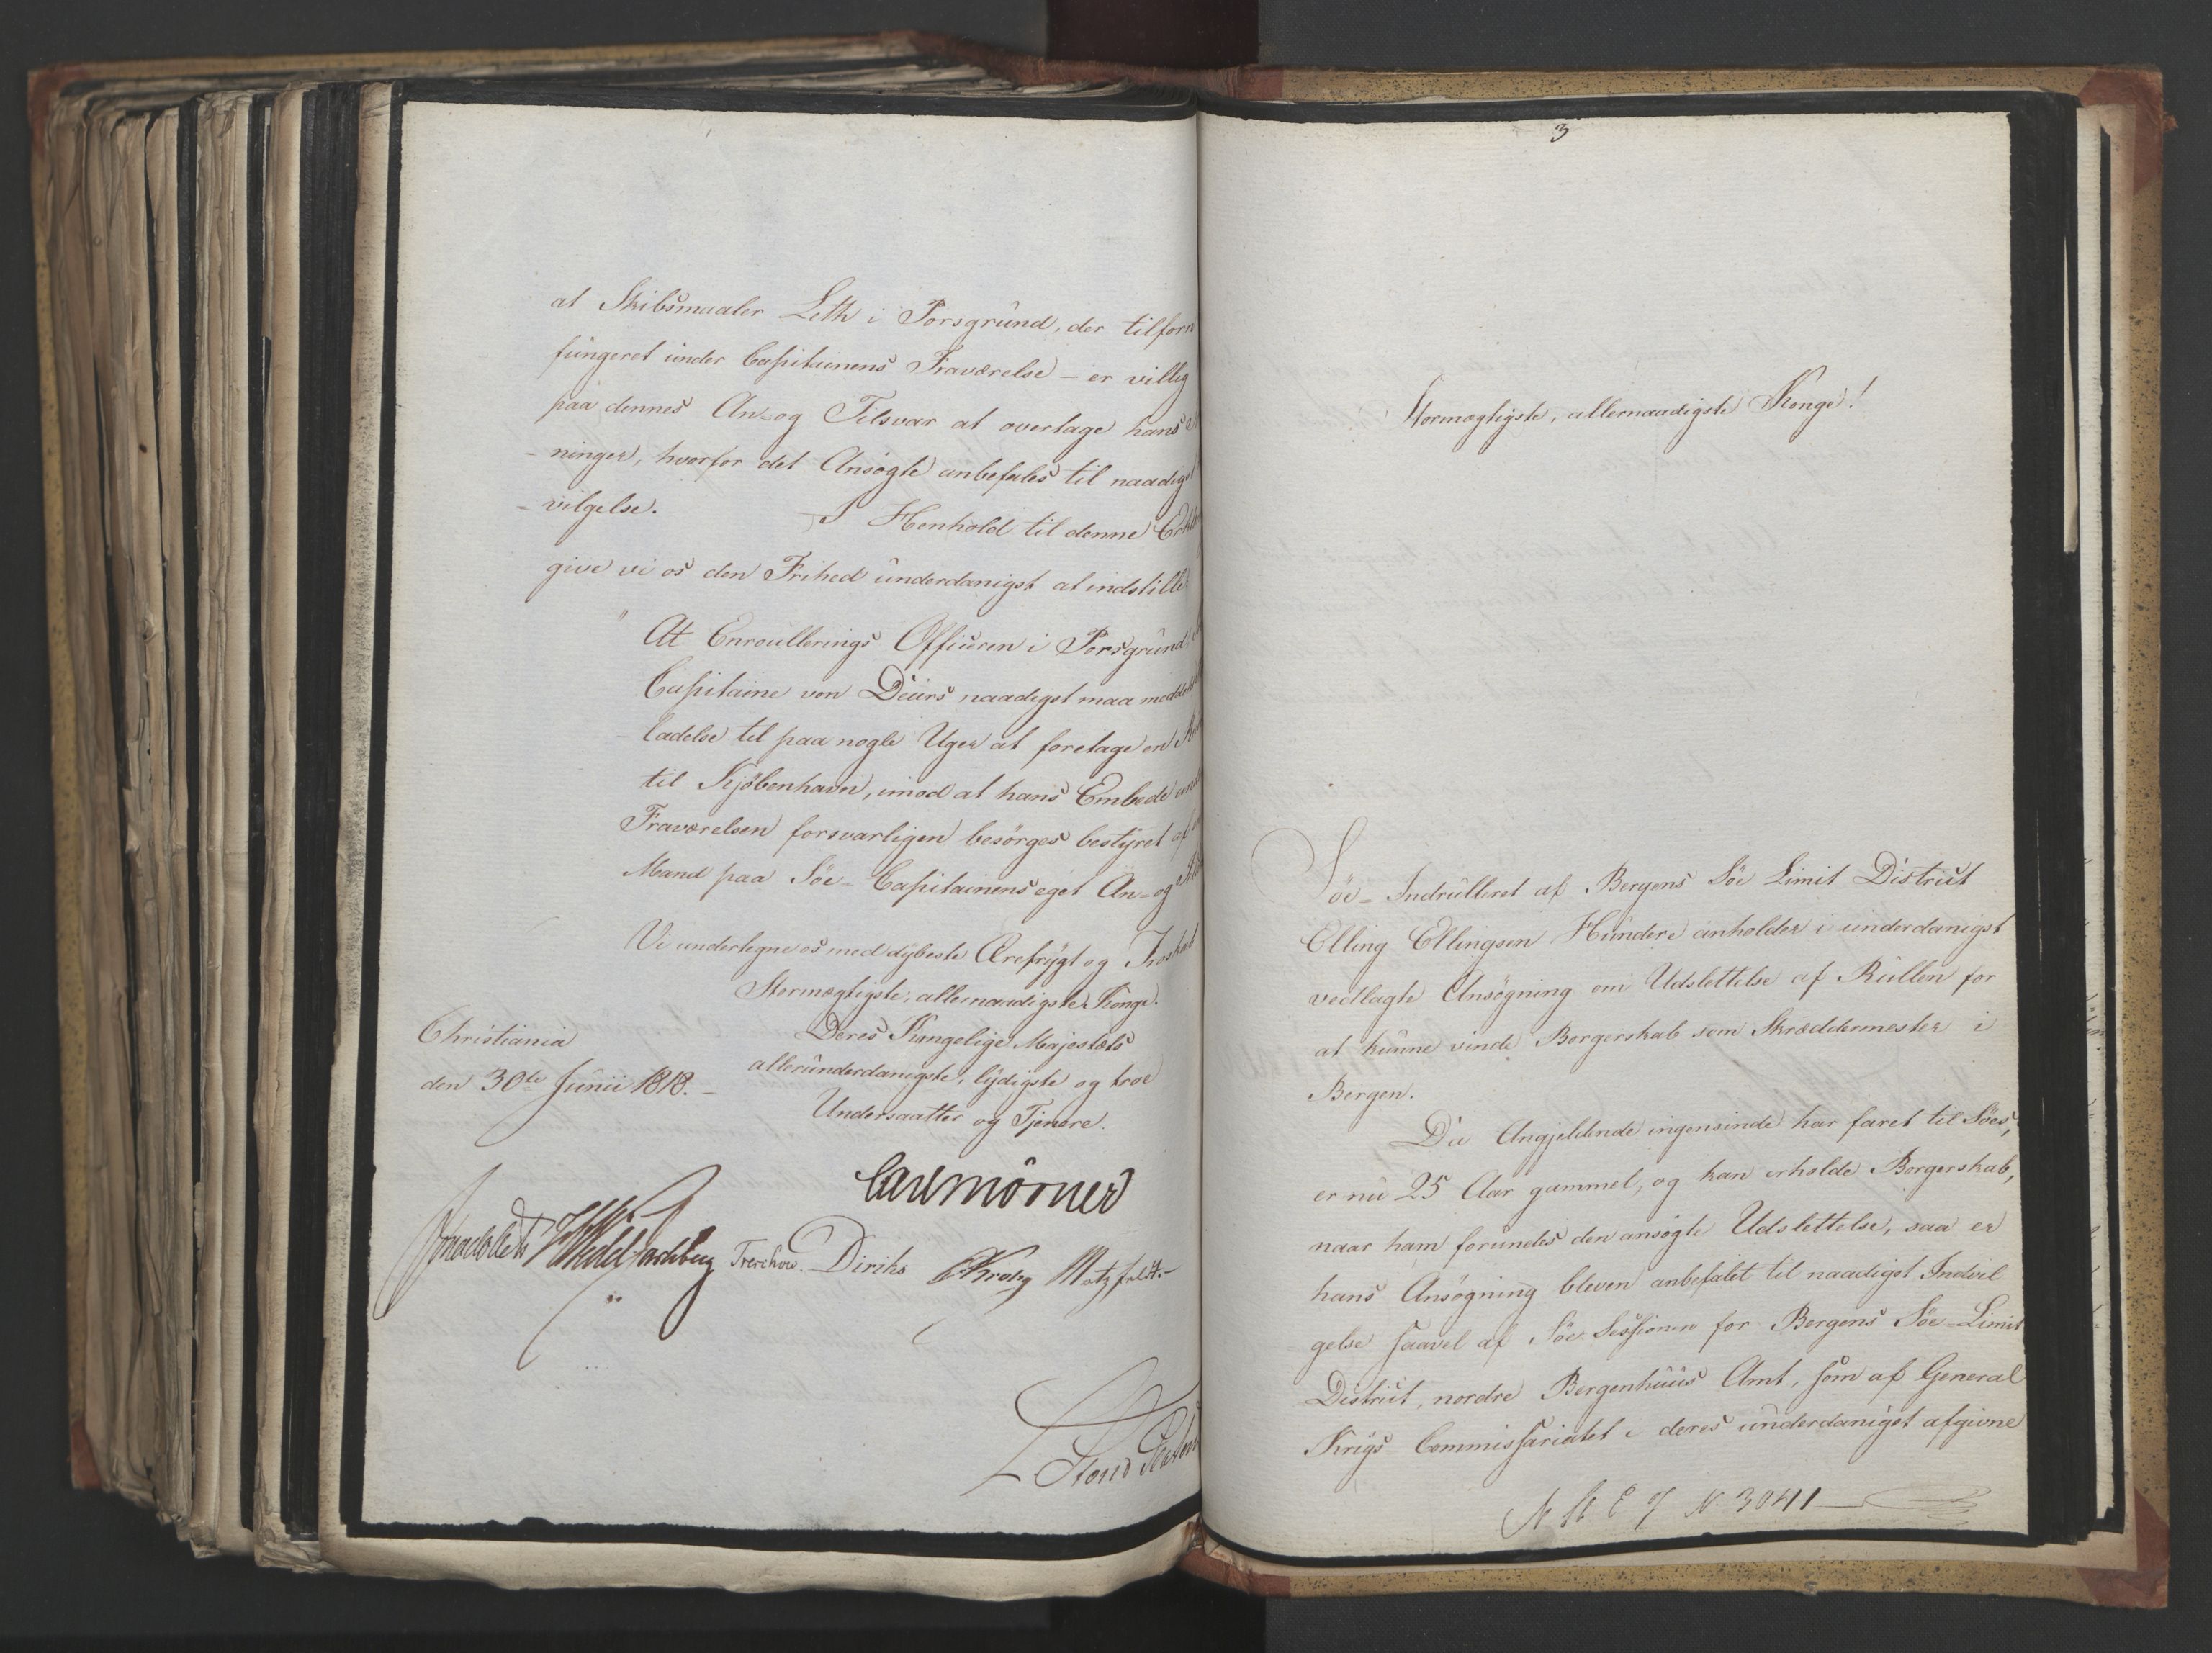 at Skibsmaaler Leth i Porsgrund, der tilforn
fungeret under Capitainens Fraværelse – er villig
paa dennes An- og Tilsvar at overtage hans
- ninger, hvorfor det Ansøgte anbefales til naadigst
- vilgelse.
I Henhold til denne
give vi os den Frihed underdanigst at indstille
" At Enroullerings Officieren i Porsgrund
Capitaine von Deürs naadigst maa meddeles
ladelse til paa nogle Uger at foretage en
til Kjöbenhavn, imod at hans Embede
Fraværelsen forsvarligen besørges bestyret af
Mand paa Söe-Capitainens eget An- og
Vi undertegne os med dybeste Ærefrygt og Troskab
Stormægtigste, allernaadigste Konge.
Deres Kongelige Majestæts
allerunderdanigste, lydigste og troe
Undersaatter og Tjenere.
Christiania
den 30te Junii 1818. –
Carl Mörner
Treschow. Diriks CKrohg Motzfeldt. –
3
Stormægtigste, allernaadigste Konge!
Söe-Indrulleret af Bergens Söe Limit District
Elling Ellingsen Hundere anholder i underdanigst
vedlagte Ansøgning om Udslettelse af Rullen for
at kunne vinde Borgerskab som Skræddermester i
Bergen.
Da Angjeldende ingensinde har faret til Söes,
er nu 25 Aar gammel, og kan erholde Borgerskab,
naar ham forundes den ansøgte Udslettelse, saa er
hans Ansøgning bleven anbefalet til naadigst Indvil
gelse saavel af Söe Sessionen for Bergens Söe-Limit
District, nordre Bergenhuus Amt, som af General
Krigs Commissariatet i deres underdanigst afgivne
N. 3041